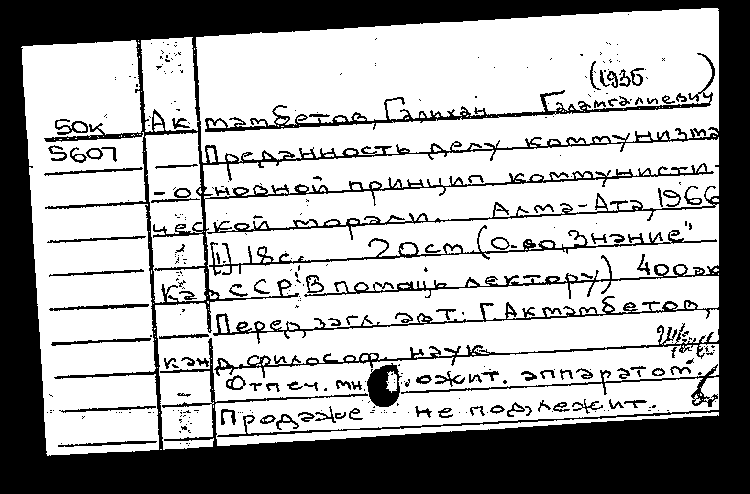 (1935 )
50к Актамбетов, Галихан Галамгалиевич
5607 Преданность делу коммунизма
- основной принцип коммунисти-
ческой морали. Алма-Ата, 1966
[1], 18с. 20ст (О-во „Знание"
КазССР. В помощь лектору) 400эк
Перед загл. авт.: Г. Актамбетов,
канд. философ. наук.
Отпеч. мн ожит. аппаратом.
Продаже не подлежит.